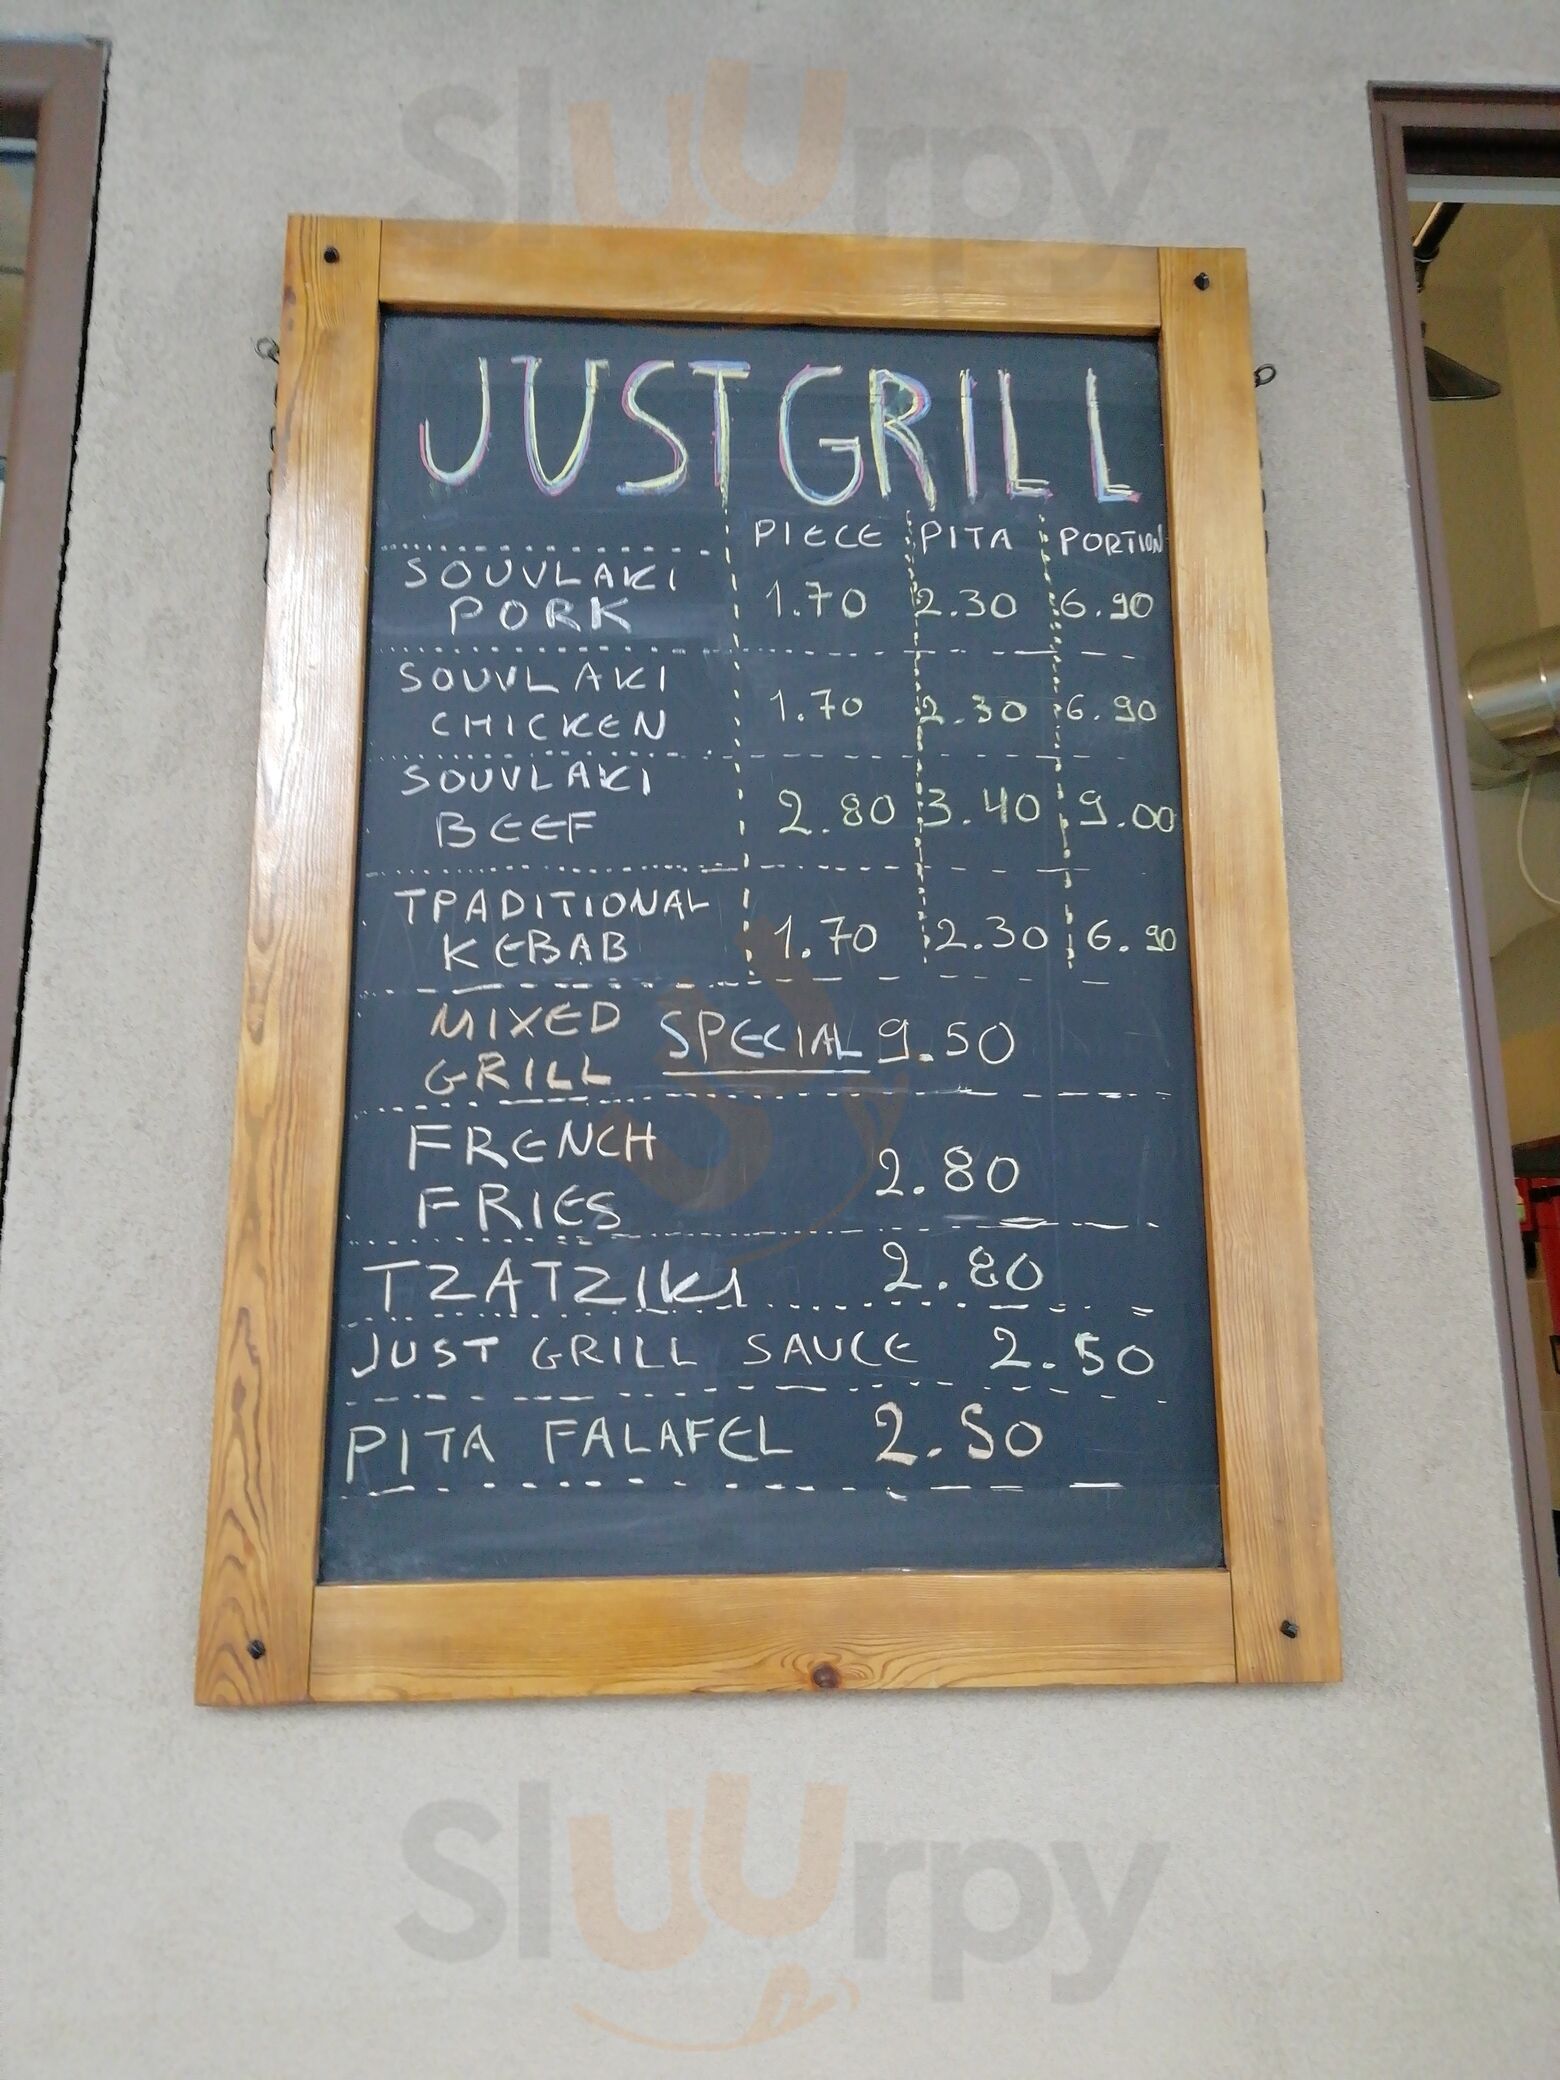 Sluurpy
JUST GRILL
PIECE PITA PORTION
SOUVLAKI
PORK 1.70 2.30 6.90
SOUVLAKI
CHICKEN 1.70 2.30 6.90
SOUVLAKI
BEEF 2.80 3.40 9.00
TPADITIONAL
KEBAB 1.70 2.30 6.90
MIXED
GRILL SPECIAL 9.50
FRENCH
FRIES 2.80
TZATZIKI 2.80
JUST GRILL SAUCE 2.50
PITA FALAFEL 2.50
Sluurpy